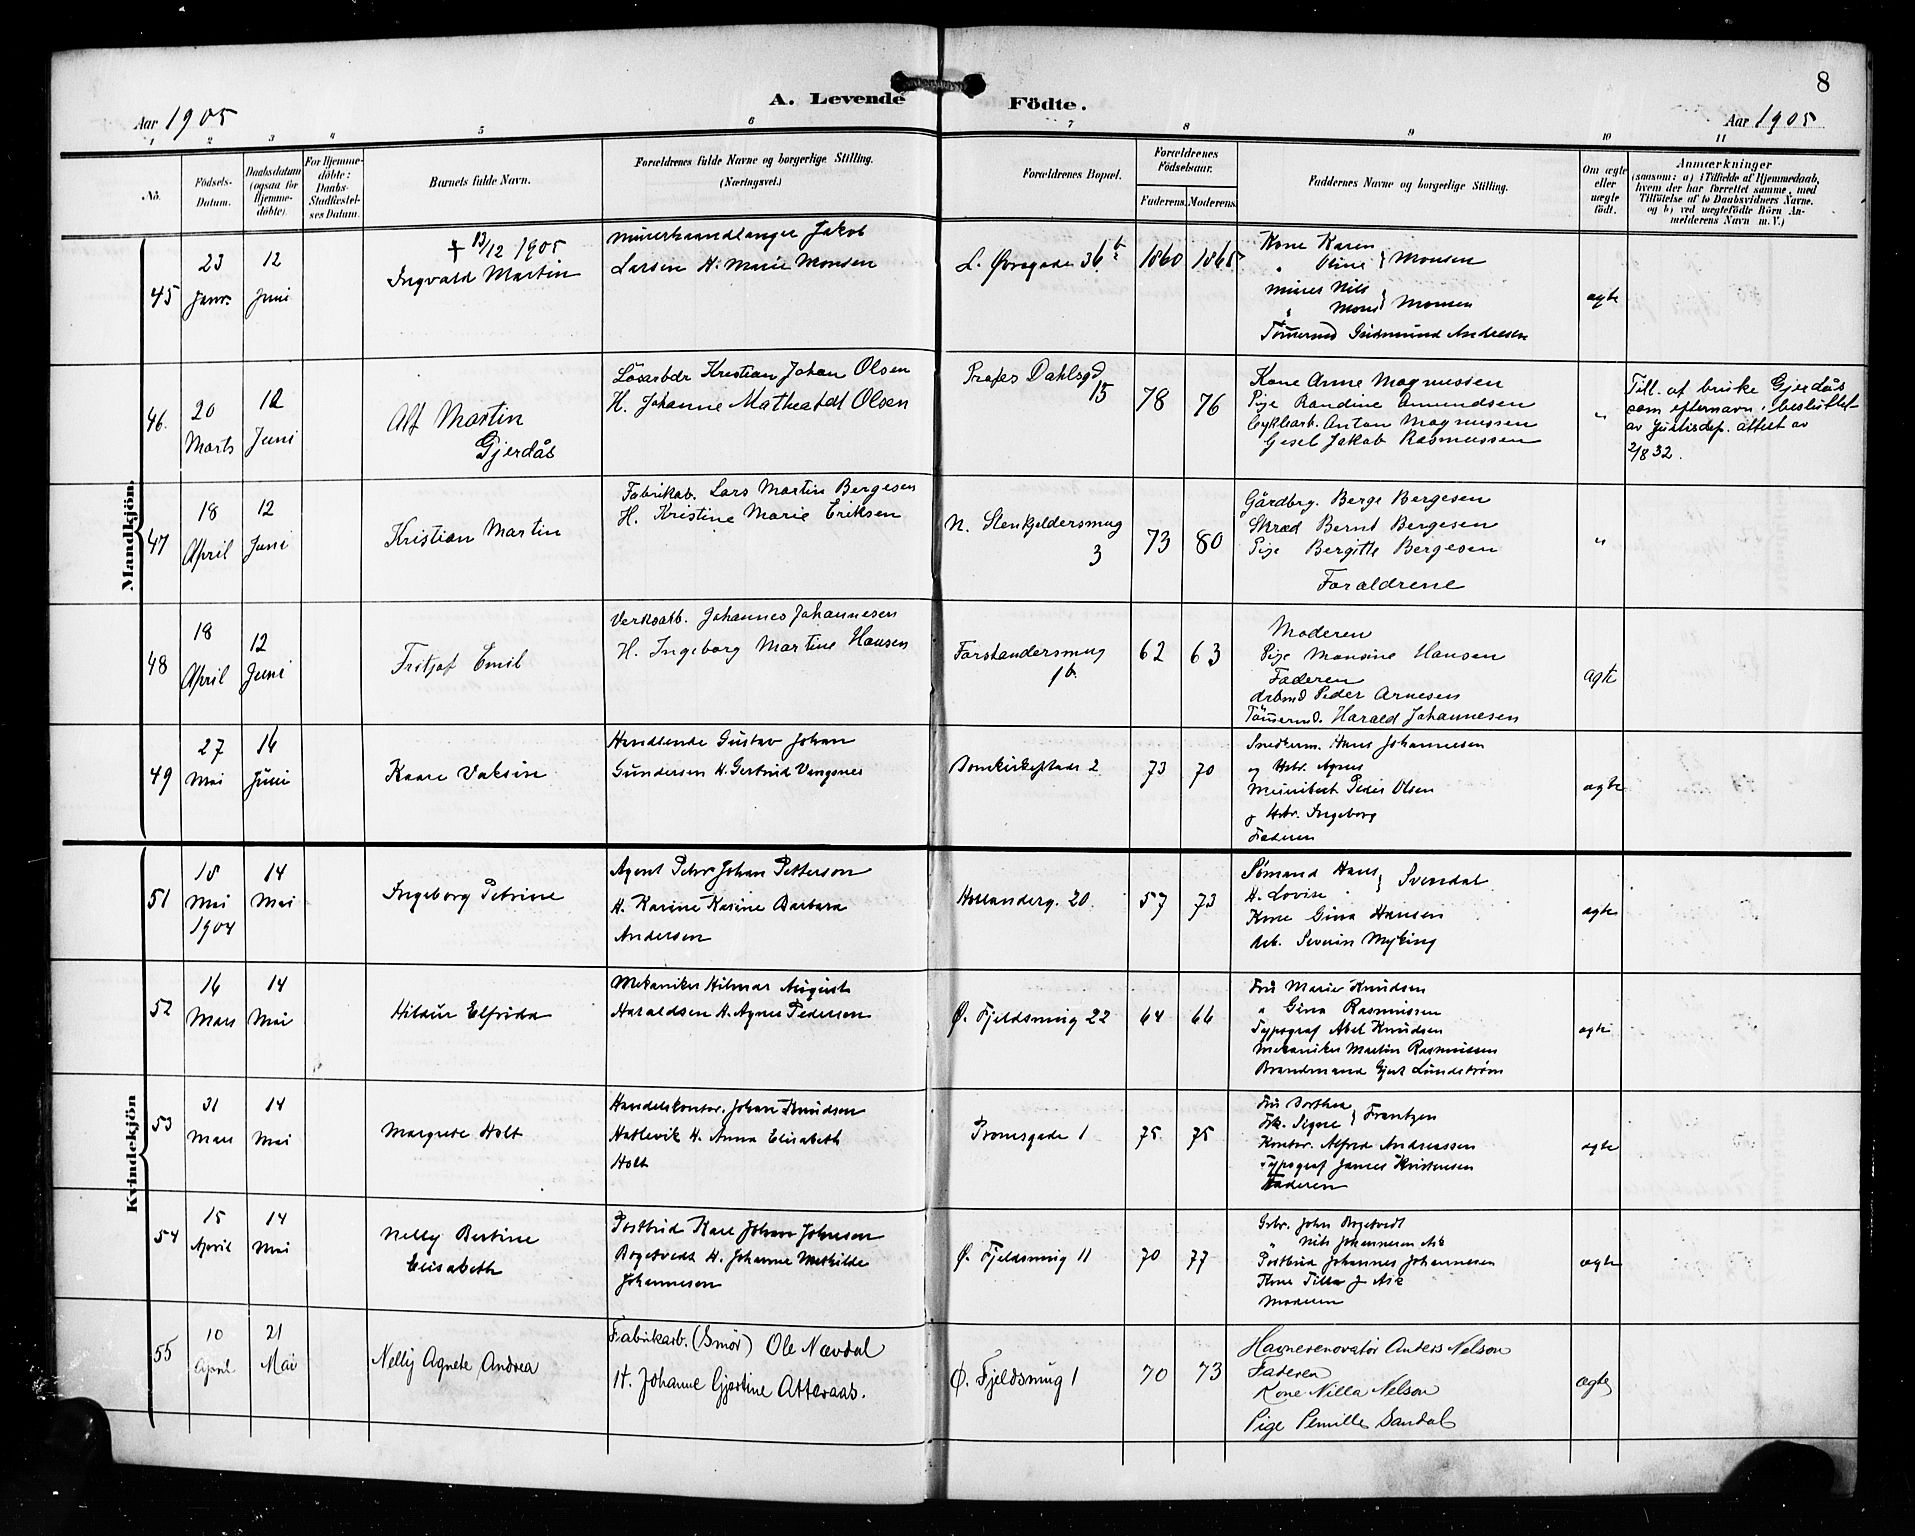 8
A. Levende Födte.
Aar 1905
Aar 1905
1 2 3 4 5 6 7 8 9 10 11
No.
Födsels-
Datum.
Daabsdatum
(ogsaa for
Hjemme-
döbte).
For Hjemme-
döbte:
Daabs-
Stadfæstel-
ses Datum.
Barnets fulde Navn.
Forældrenes fulde Navne og borgerlige Stilling.
(Næringsvei.)
Forældrenes Bopæl.
Forældrenes
Födselsaar.
Faderens. Moderens.
Faddernes Navne og borgerlige Stilling.
Om ægte
eller
uægte
födt.
Anmærkninger
(saasom: a) i Tilfælde af Hjemmedaab,
hvem der har forrettet samme, med
Tilföielse af to Daabsvidners Navne.
og b) ved uægtefödte Börn An-
melderens Navn m. V.)
Mandkjön.
45
23
Janr.
12
Juni
† 13/12 1905
Ingvald Martin
Murerhaandlanger Jakob
Larsen H. Marie Monsen
L. Øvregade 36 b
1860 1865
Kone Karen
" Oline } Monsen
Murer Nils
" Mons } Monsen
Tømmermd Gudmund Andersen
ægte
46.
20
Marts
12
Juni
Alf Martin
Gjerdås
Løsarbdr Kristian Johan Olsen
H. Johanne Mathea fdt Olsen
Profes Dahlsgd
15
78 76
Kone Anne Magnussen
Pige Randine Amundsen
Cyklearb. Anton Magnussen
Gesel Jakob Rasmussen
"
Till. at bruke Gjerdås
som efternavn, besluttet
av Justisdep. attest av
2/8 32.
47
18
April
12
Juni
Kristian Martin
Fabrikab. Lars Martin Bergesen
H. Kristine Marie Eriksen
N. Stenkjeldersmug
3
73 80
Gårdbrg. Berge Bergesen
Skræd Bernt Bergesen
Pige Bergitte Bergesen
Forældrene
"
48
18
April
12
Juni
Fritjof Emil
Verksarb. Johannes Johannesen
H. Ingeborg Martine Hansen
Forstandersmug
1b.
62 63
Moderen
Pige Monsine Hansen
Faderen
Arbmd Peder Arnesen
Tømmermd. Harald Johannesen
ægte
49
27
Mai
16
Juni
Kaare Valsin
Handlende Gustav Johan
Gundersen H. Gertrud Vangsnes
Domkirkeplads 2
73 70
Snedkerm. Hans Johannesen
og Hstr. Agnes
Peder Olsen
og Hstr. Ingeborg
Faderen
ægte
Kvindekjön
51
18
Mai
1904
14
Mai
Ingeborg Petrine
Agent Peter Johan Petterson
H. Karine Kasine Barbara
Andersen
Hollanderg. 20.
57 73
Sømand Hans
H. Lovise } Svendal
Kone Gina Hansen
Arb. Severin Myking
ægte
52
16
Mars
14
Mai
Hildur Elfrida
Mekaniker Hilmar August
Haraldsen H. Agnes Pedersen
Ø. Fjeldsmug 22
64 66
Fru Marie Knudsen
" Gina Rasmussen
Typograf Abel Knudsen
Mekaniker Martin Rasmussen
Brandmand Gjert Lundstrøm
ægte
53
31
Mars
14
Mai
Margrete Holt
Handelskontor. Johan Knudsen
Hatlevik H. Anna Elisabeth
Holt
Promsgade 1
75 75
Fru Dorthea
Frk. Signe } Frantzen
Kontor. Alfred Andreassen
Typograf James Kristensen
Faderen
ægte
54
15
April
14
Mai
Nelly Bertine
Elisabeth
Postbud Karl Johan Johnsen
Bogetvedt H. Johanne Mathilde
Johannesen
Ø. Fjeldsmug 11
70 77
Gbr. John Bogetvedt
" Nils Johannesen Ask
Postbud Johannes Johannesen
Kone Tilla J. Ask
Moderen
ægte
55
10
April
21
Mai
Nelly Agnete Andrea
Fabrikarb. (Smør) Ole Nævdal
H. Johanne Gjertine Atteraas.
Ø. Fjeldsmug 1
70 73
Havnerenovatør Anders Nelson
Faderen
Kone Nilla Nelson
Pige Pernille Sandal
ægte